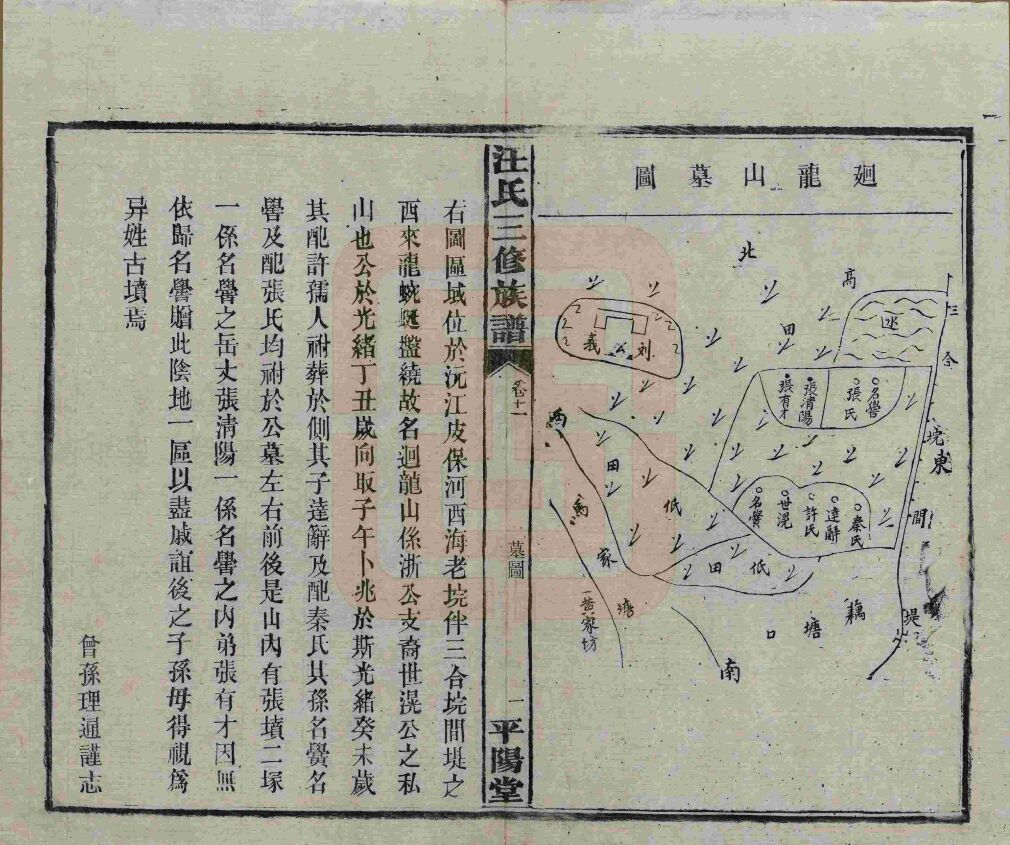 廻龍山墓圖
北
高
田
水
三合垸間堤
東
刘
义
義
名譽
張氏
張清陽
張有才
西
田
低
名黌
世滉
許氏
達辭
秦氏
馬家塘
黄家坊
低田
藕塘口
南
汪氏三修族譜
卷十一
墓圖
一
平陽堂
右圖區域位於沅江皮保河西海老垸伴三合垸間堤之
西來龍蜿蜒盤繞故名迴龍山係浙公支裔世滉公之私
山也公於光緒丁丑歲向取子午卜兆於斯光緒癸未歲
其配許孺人祔葬於側其子達辭及配秦氏其孫名黌名
譽及配張氏均祔於公墓左右前後是山內有張墳二塚
一係名譽之岳丈張清陽一係名譽之內弟張有才因無
依歸名譽贈此陰地一區以盡戚誼後之子孫毋得視爲
异姓古墳焉
曾孫理通謹志